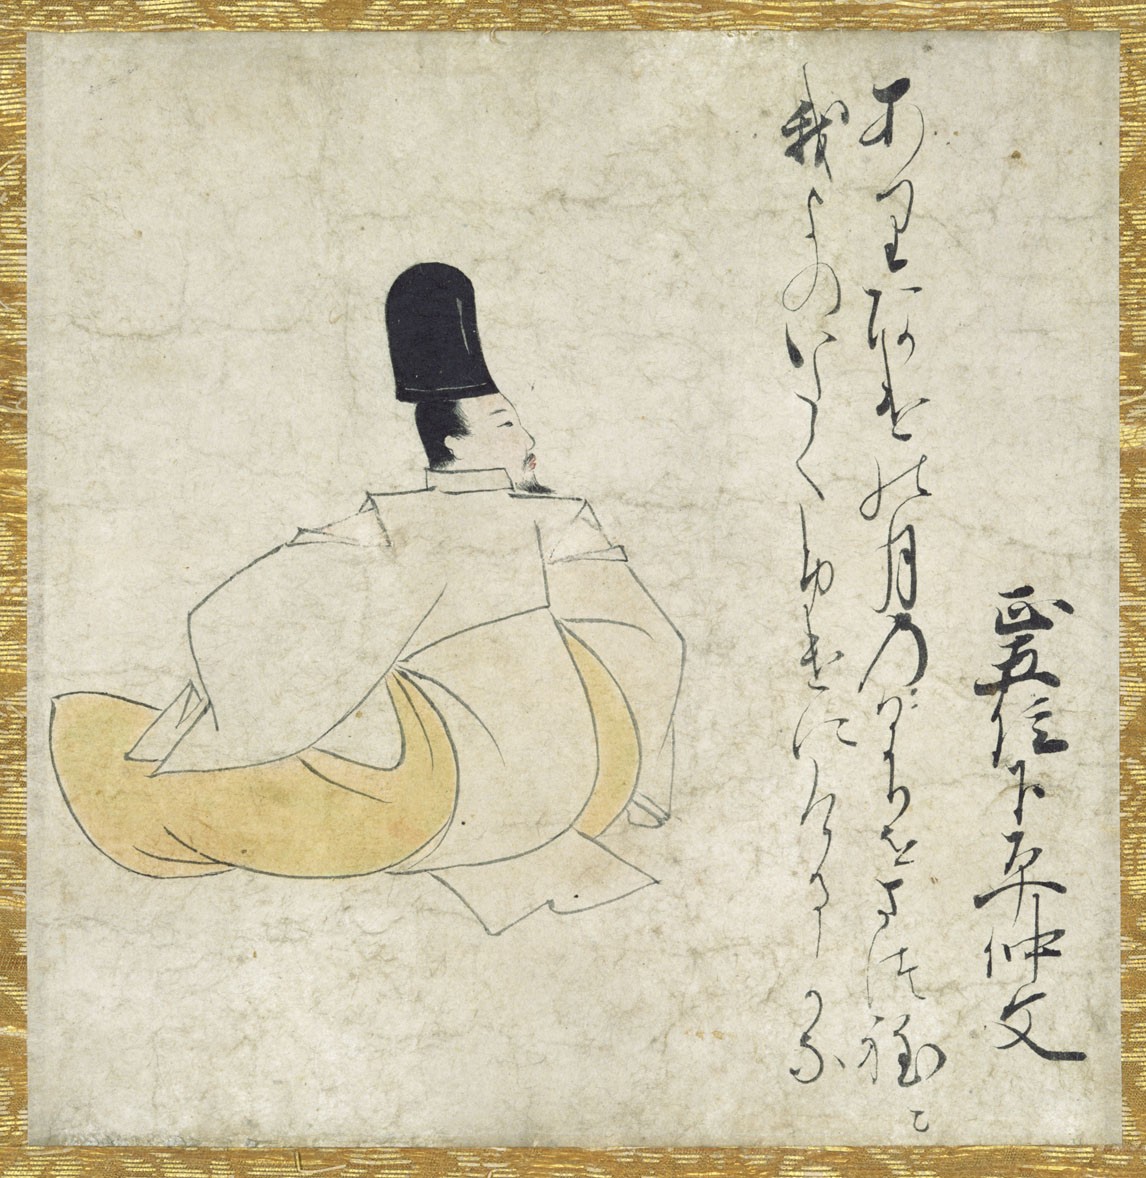 正五位下藤仲文
あり阿けの月乃ひかりをまつ程に
我よのいたくふけにけるかな